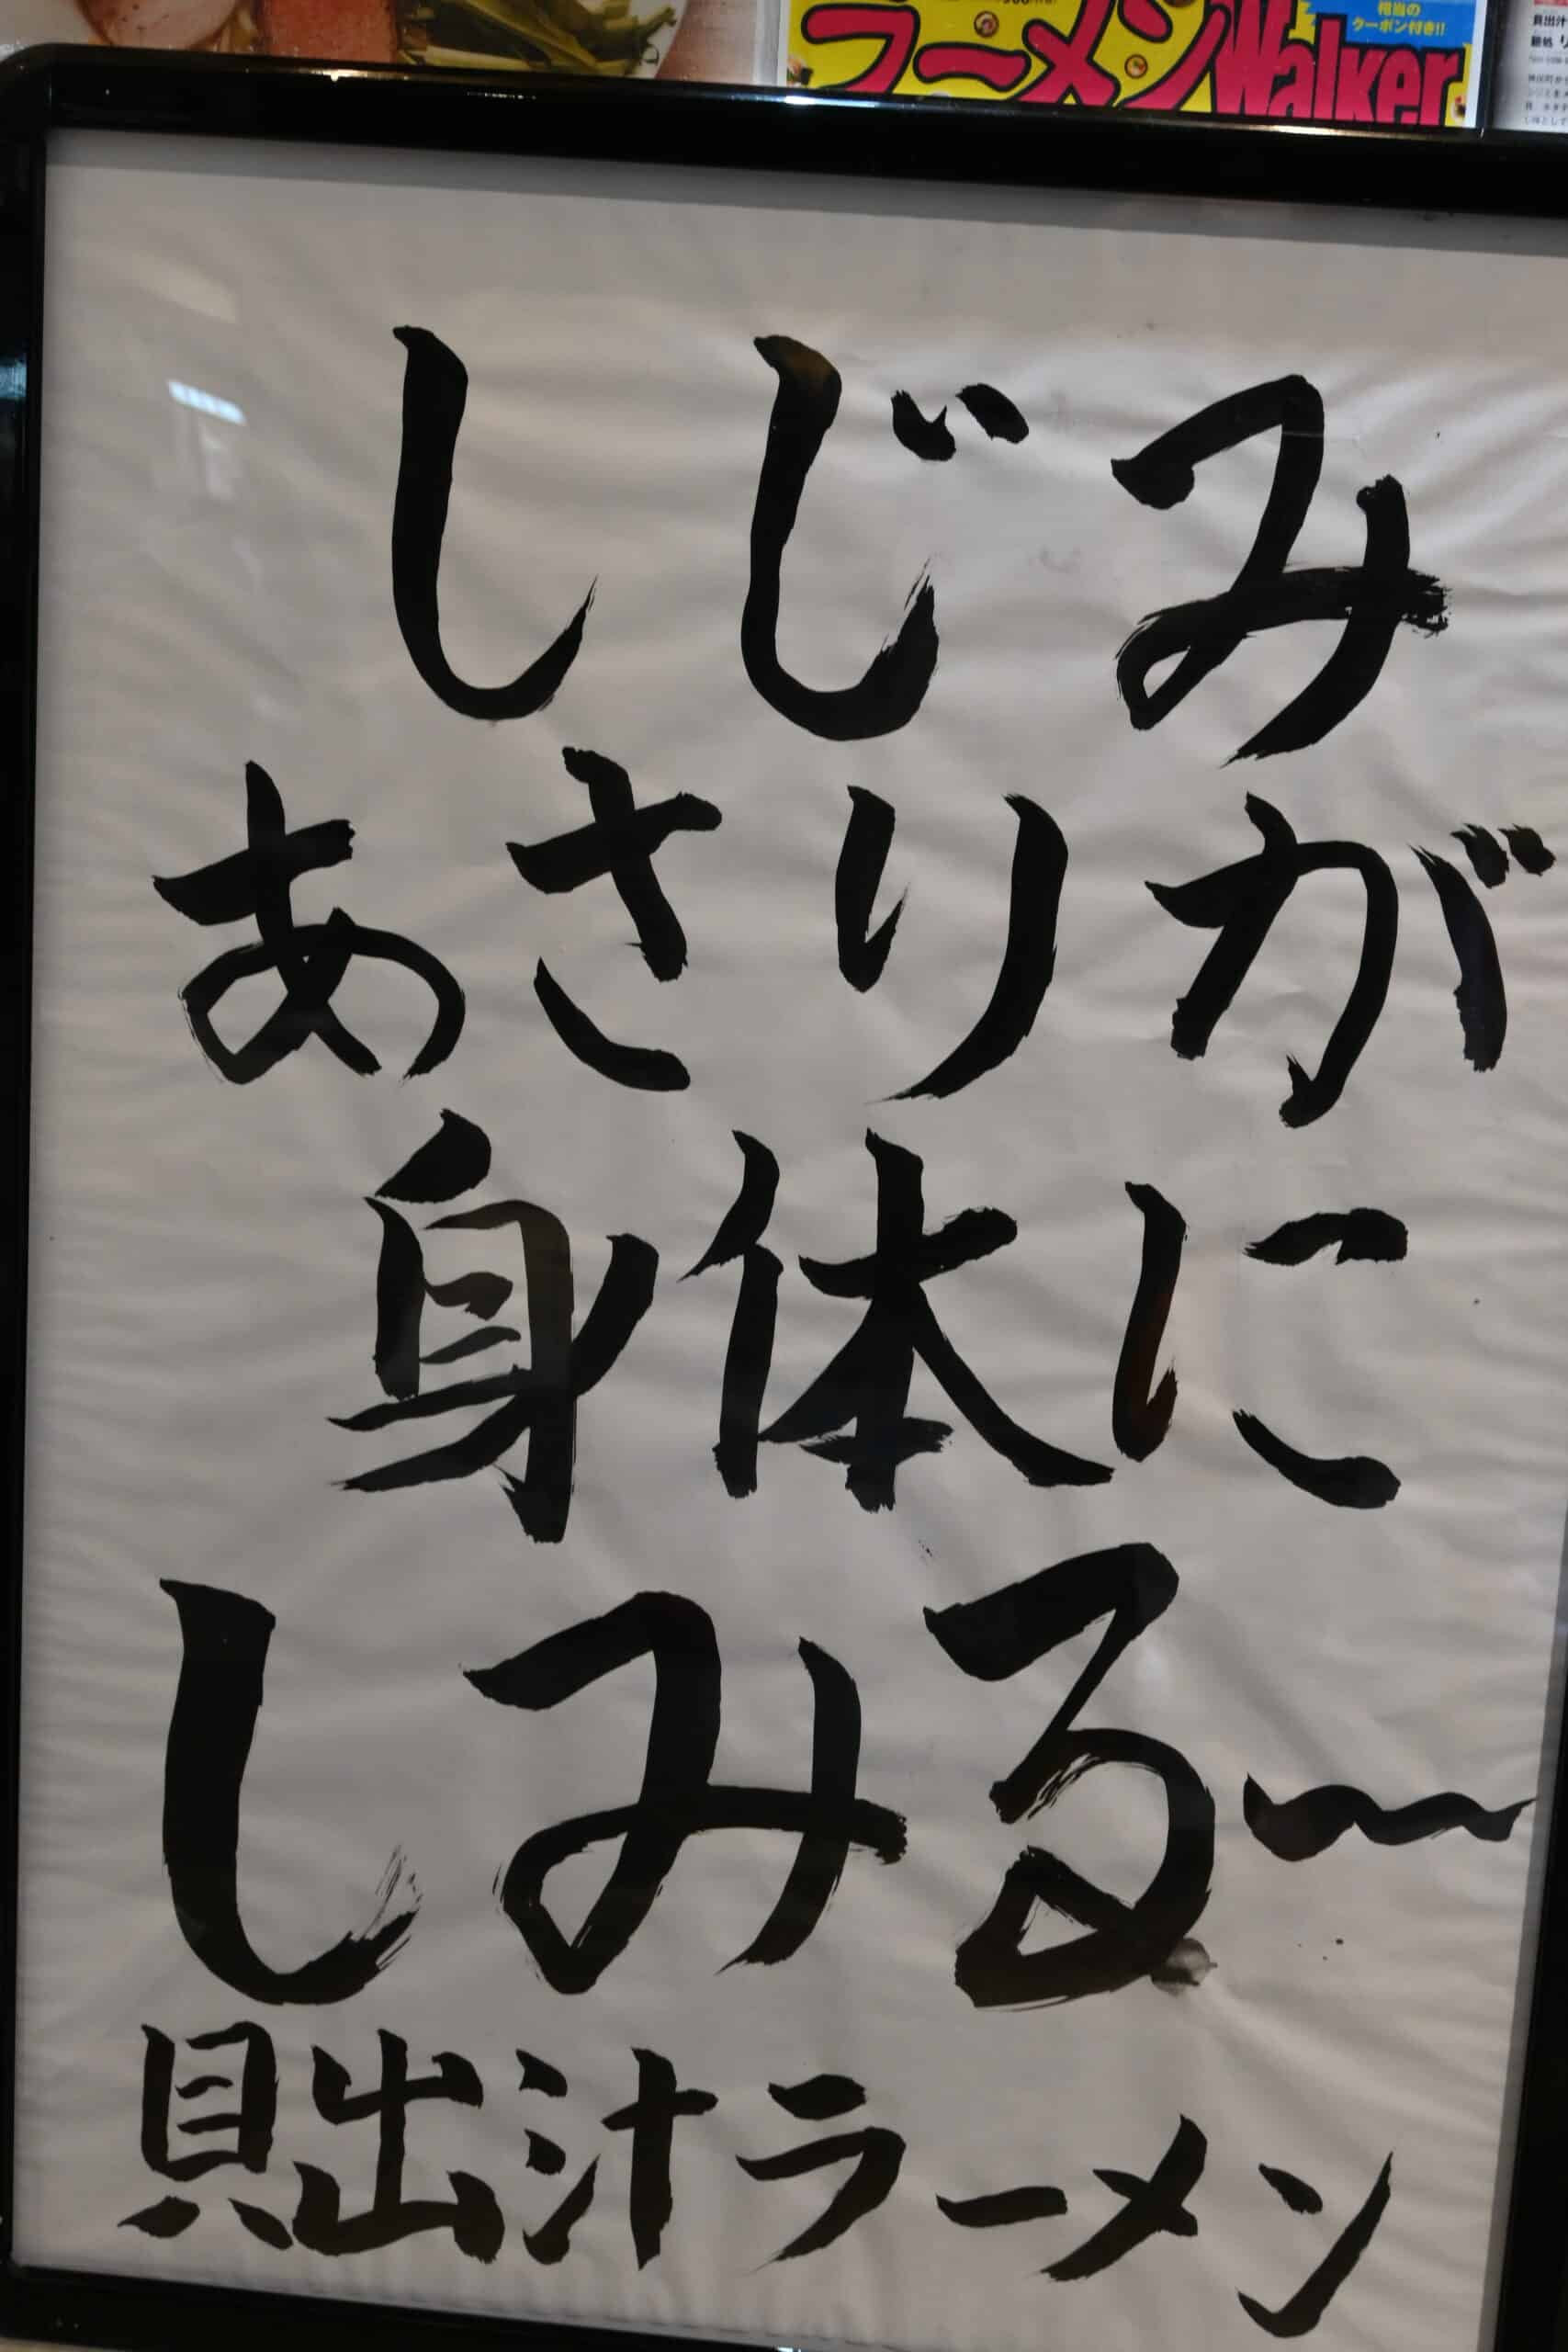 ラーメンWalker
相当の
クーポン付き!!
貝出汁
しじみ
あさりが
身体に
しみる〜
貝出汁ラーメン